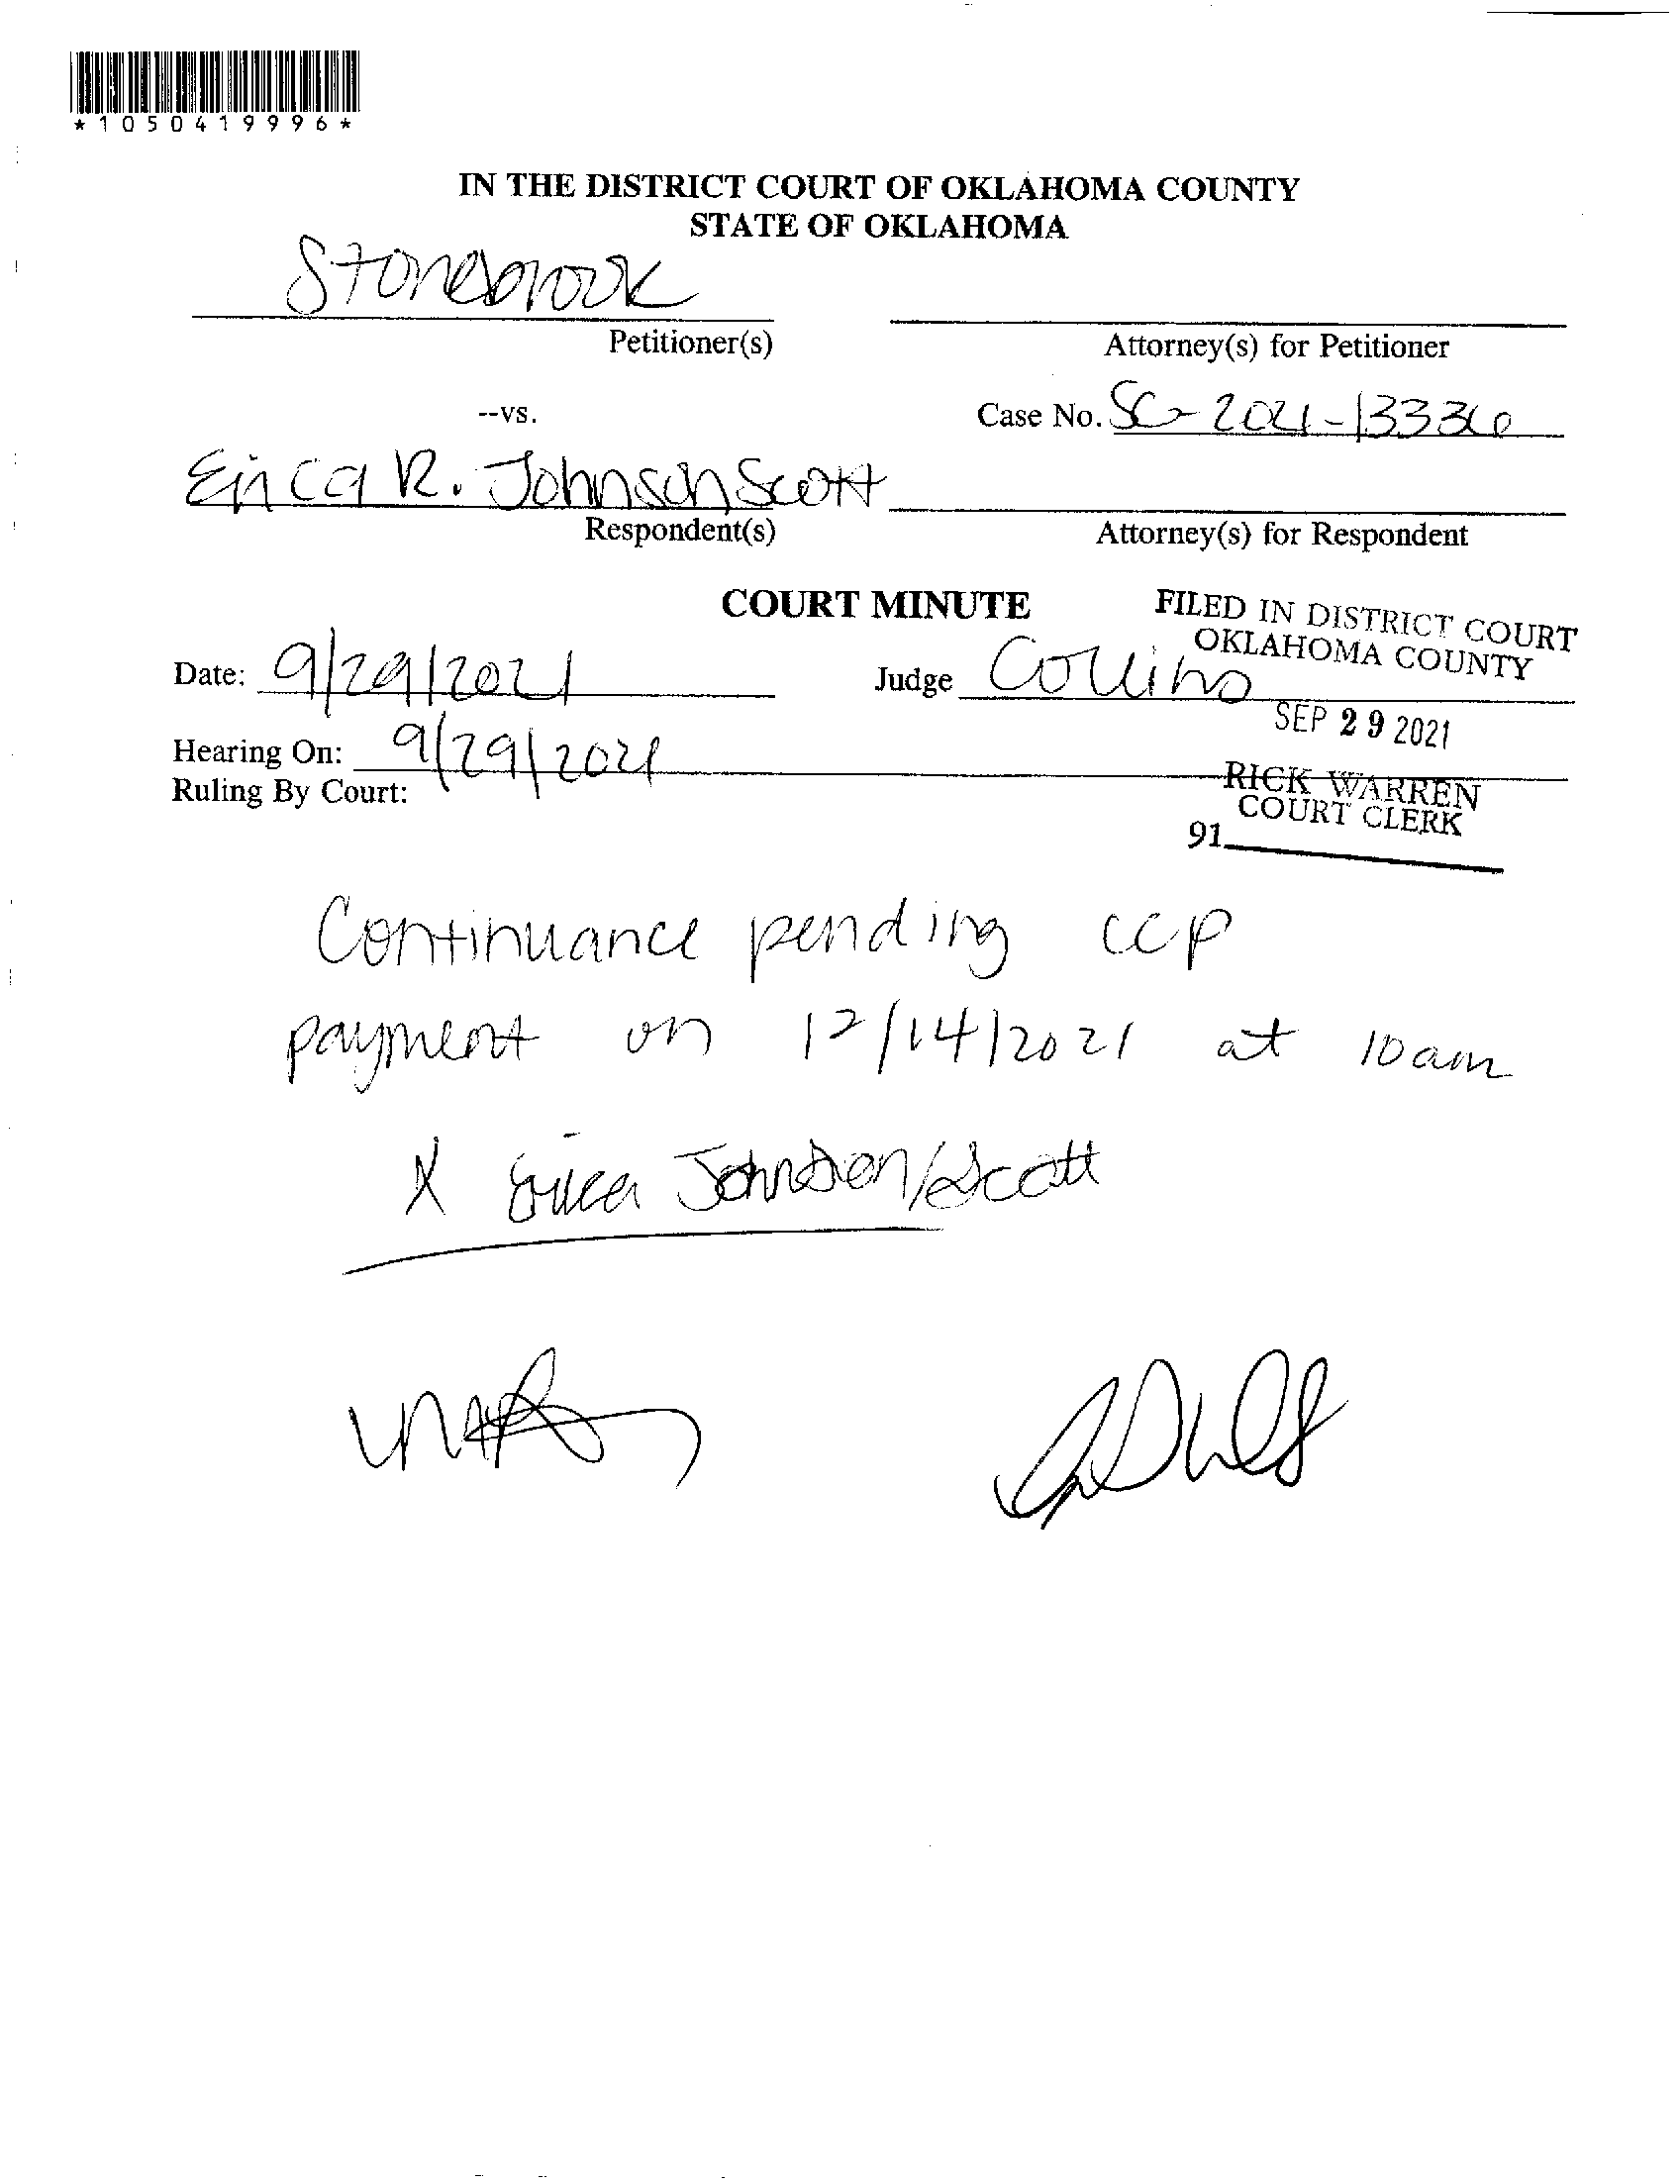 *1050419996*
IN THE DISTRICT COURT OF OKLAHOMA COUNTY
STATE OF OKLAHOMA
Stonebrook
Petitioner(s)
Attorney(s) for Petitioner
--vs.
Case No. SC-2021-13336
Erica R. Johnson Scott
Respondent(s)
Attorney(s) for Respondent
COURT MINUTE
FILED IN DISTRICT COURT
OKLAHOMA COUNTY
Date: 9/29/2021
Judge Collins
SEP 29 2021
Hearing On: 9/29/2021
Ruling By Court:
RICK WARREN
COURT CLERK
91
Continuance pending ccp
payment on 12/14/2021 at 10am
X Erica Johnson/Scott